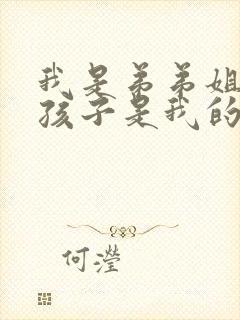 我是弟弟姐
孩子是我的
何滢